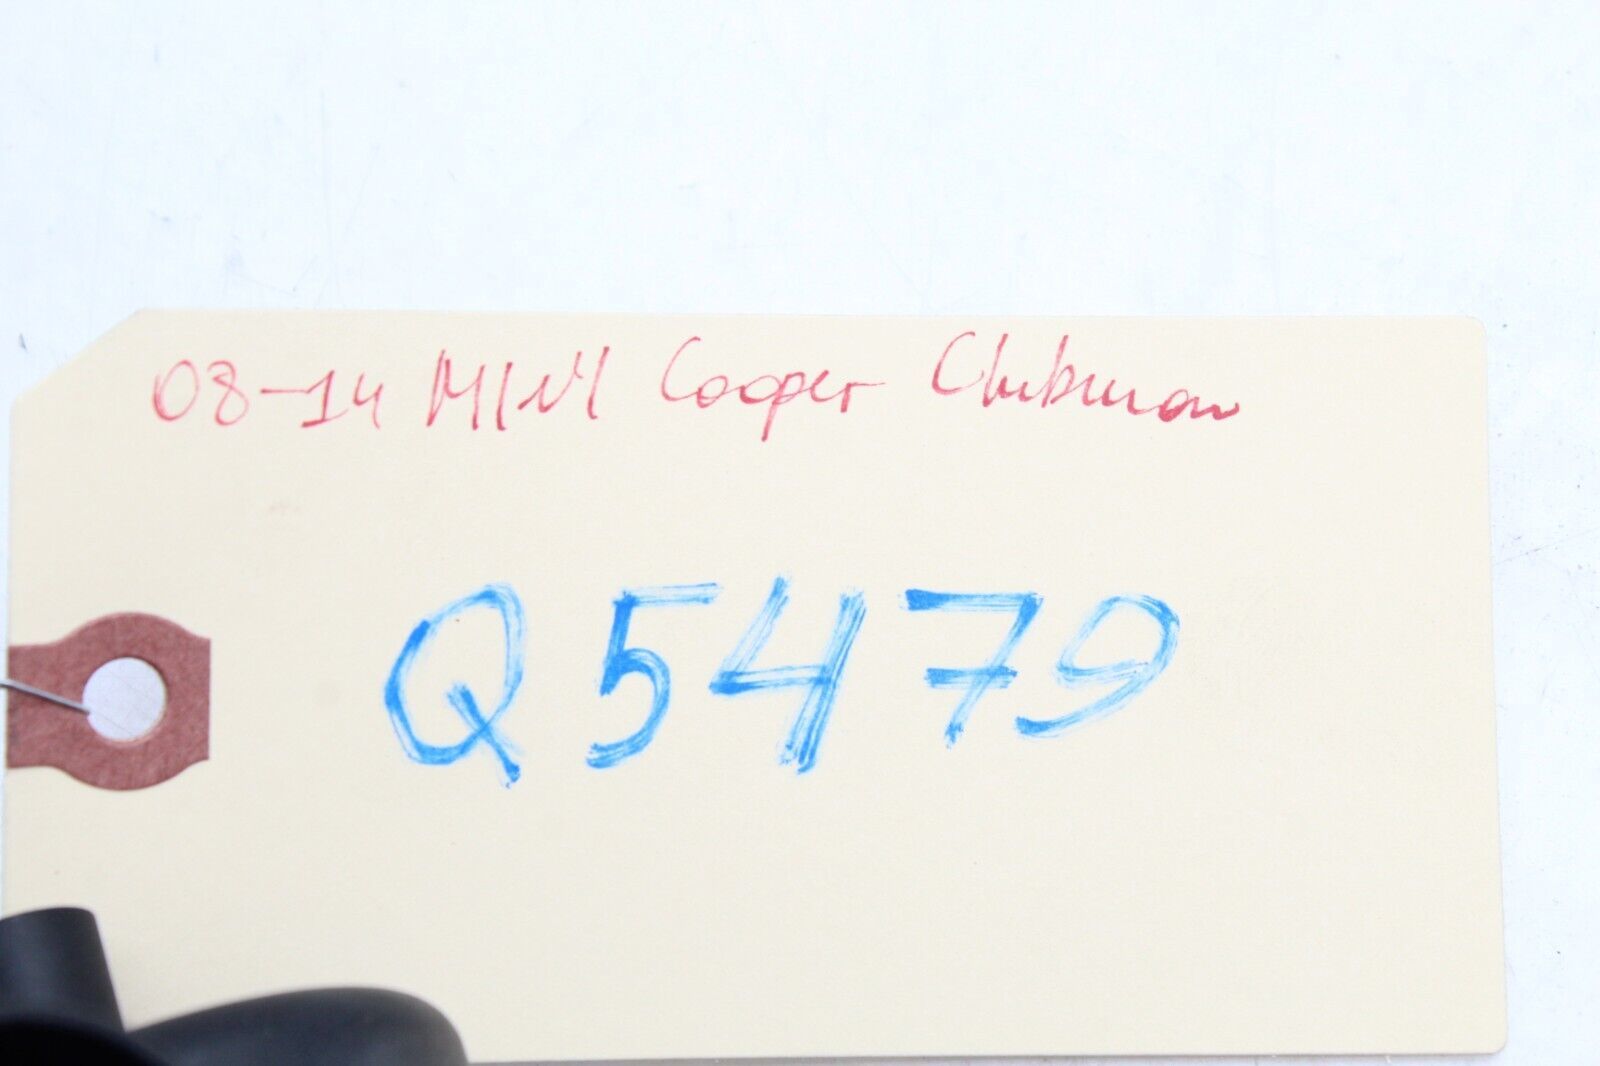 08-14 MINI Cooper Clubman
Q5479